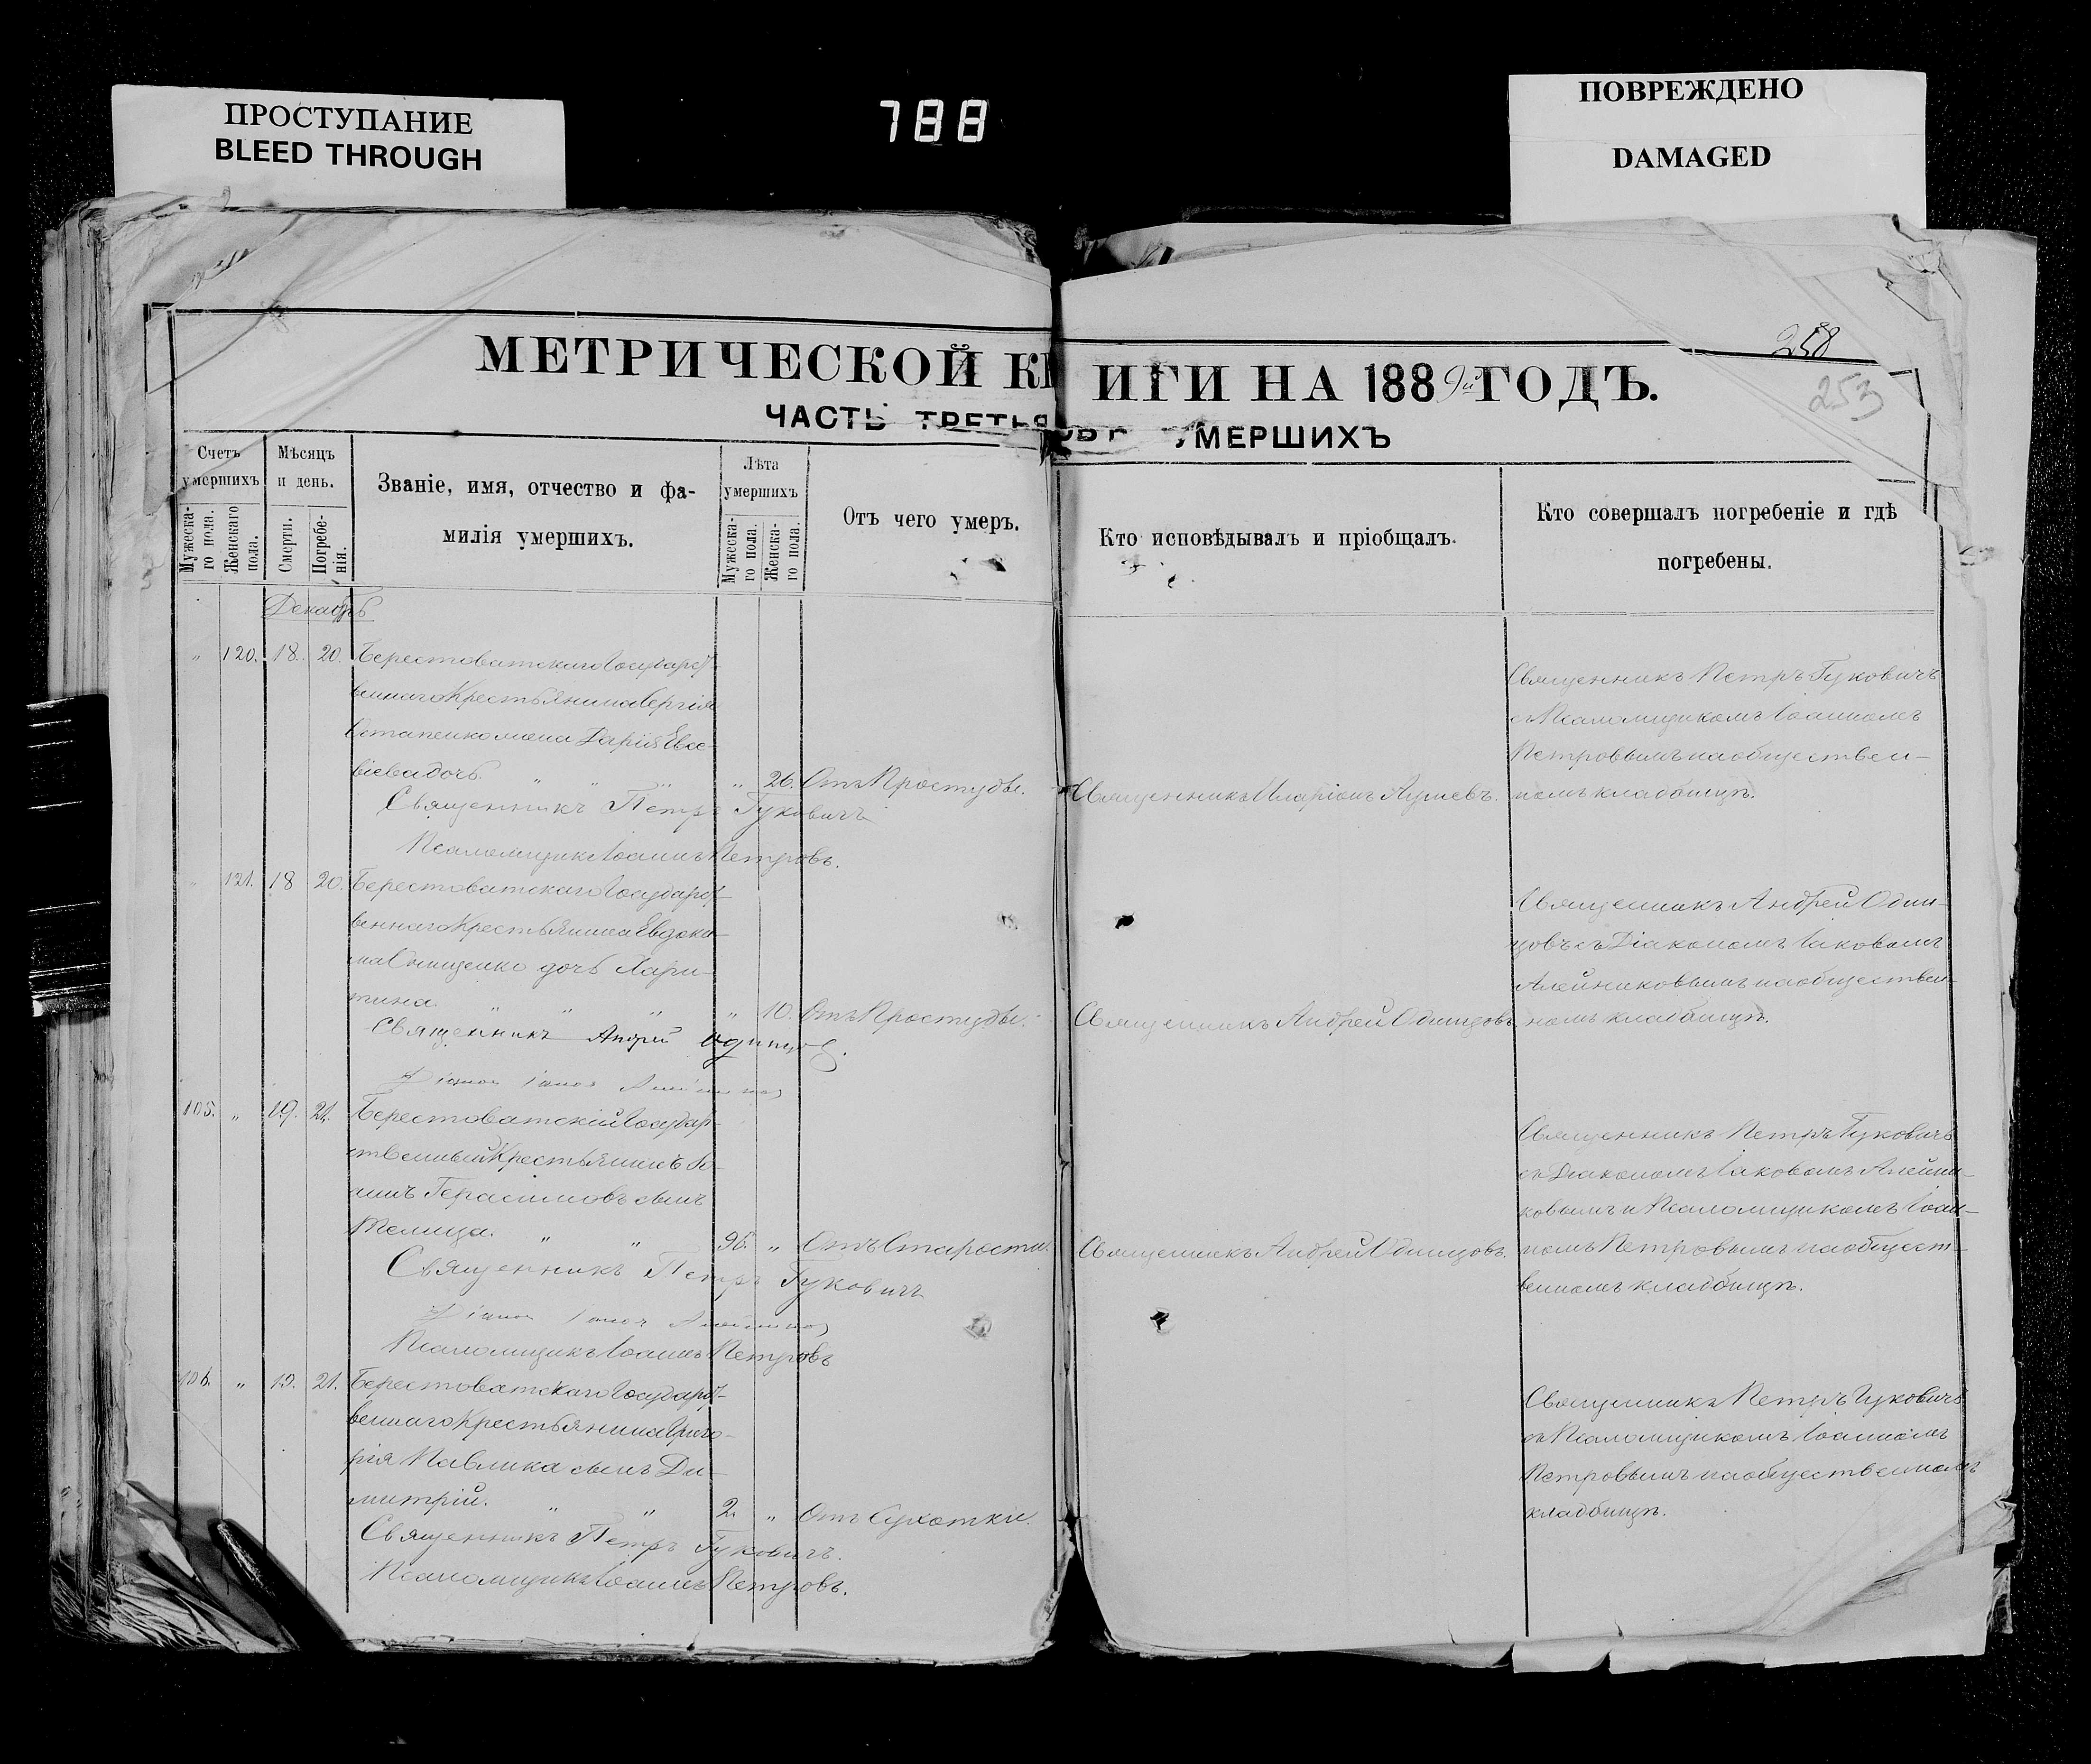 ПРОСТУПАНИЕ
BLEED THROUGH
788
ПОВРЕЖДЕНО
DAMAGED
МЕТРИЧЕСКОЙ КНИГИ НА 1889й ГОДЪ.
ЧАСТЬ ТРЕТЬЯ УМЕРШИХЪ
258
253
Счетъ умершихъ
Мужеска-го пола.
Женскаго пола.
Мѣсяцъ и день.
Смерти.
Погребе-нія.
Званіе, имя, отчество и фа-
милія умершихъ.
Лѣта умершихъ
Мужеска-го пола.
Женска-го пола.
Отъ чего умеръ.
Кто исповѣдывалъ и пріобщалъ.
Кто совершалъ погребеніе и гдѣ
погребены.
Декабрь
" 120. 18. 20. Берестоватскаго Государст-
веннаго Крестьянина Сергія
Остапенко жена Дарія Евсе-
віева дочь. " " " " 26. Отъ Простуды.
Священникъ Петръ Гуковичъ
Псаломщикъ Іоаннъ Петровъ.
Священникъ Иларіонъ
Священникъ Петръ Гуковичъ
съ Псаломщикомъ Іоанномъ
Петровымъ на обществен-
номъ кладбищѣ.
" 121. 18 20. Берестоватскаго Государст-
веннаго Крестьянина Евдоки-
ма Онищенко дочь Хари-
тина. " " " " 10. Отъ Простуды.
Священникъ Андрей Одинцовъ.
Діаконъ Іаковъ Алейниковъ
Священникъ Андрей Одинцовъ
Священникъ Андрей Один-
цовъ съ Діакономъ Іаковомъ
Алейниковымъ на обществен-
номъ кладбищѣ.
105. " 19. 21. Берестоватскій Государ-
ственный Крестьянинъ Іо-
аннъ Герасимовъ сынъ
Телица. " " 96. " Отъ Старости.
Священникъ Петръ Гуковичъ
Діаконъ Іаковъ Алейниковъ
Псаломщикъ Іоаннъ Петровъ
Священникъ Андрей Одинцовъ.
Священникъ Петръ Гуковичъ
съ Діакономъ Іаковомъ Алейни-
ковымъ и Псаломщикомъ Іоан-
номъ Петровымъ на общест-
венномъ кладбищѣ.
106. " 19. 21. Берестоватскаго Государст-
веннаго Крестьянина Григо-
рія Павлика сынъ Ди-
митрій. " " 2. " Отъ Сухотки.
Священникъ Петръ Гуковичъ.
Псаломщикъ Іоаннъ Петровъ.
Священникъ Петръ Гуковичъ
съ Псаломщикомъ Іоанномъ
Петровымъ на общественномъ
кладбищѣ.